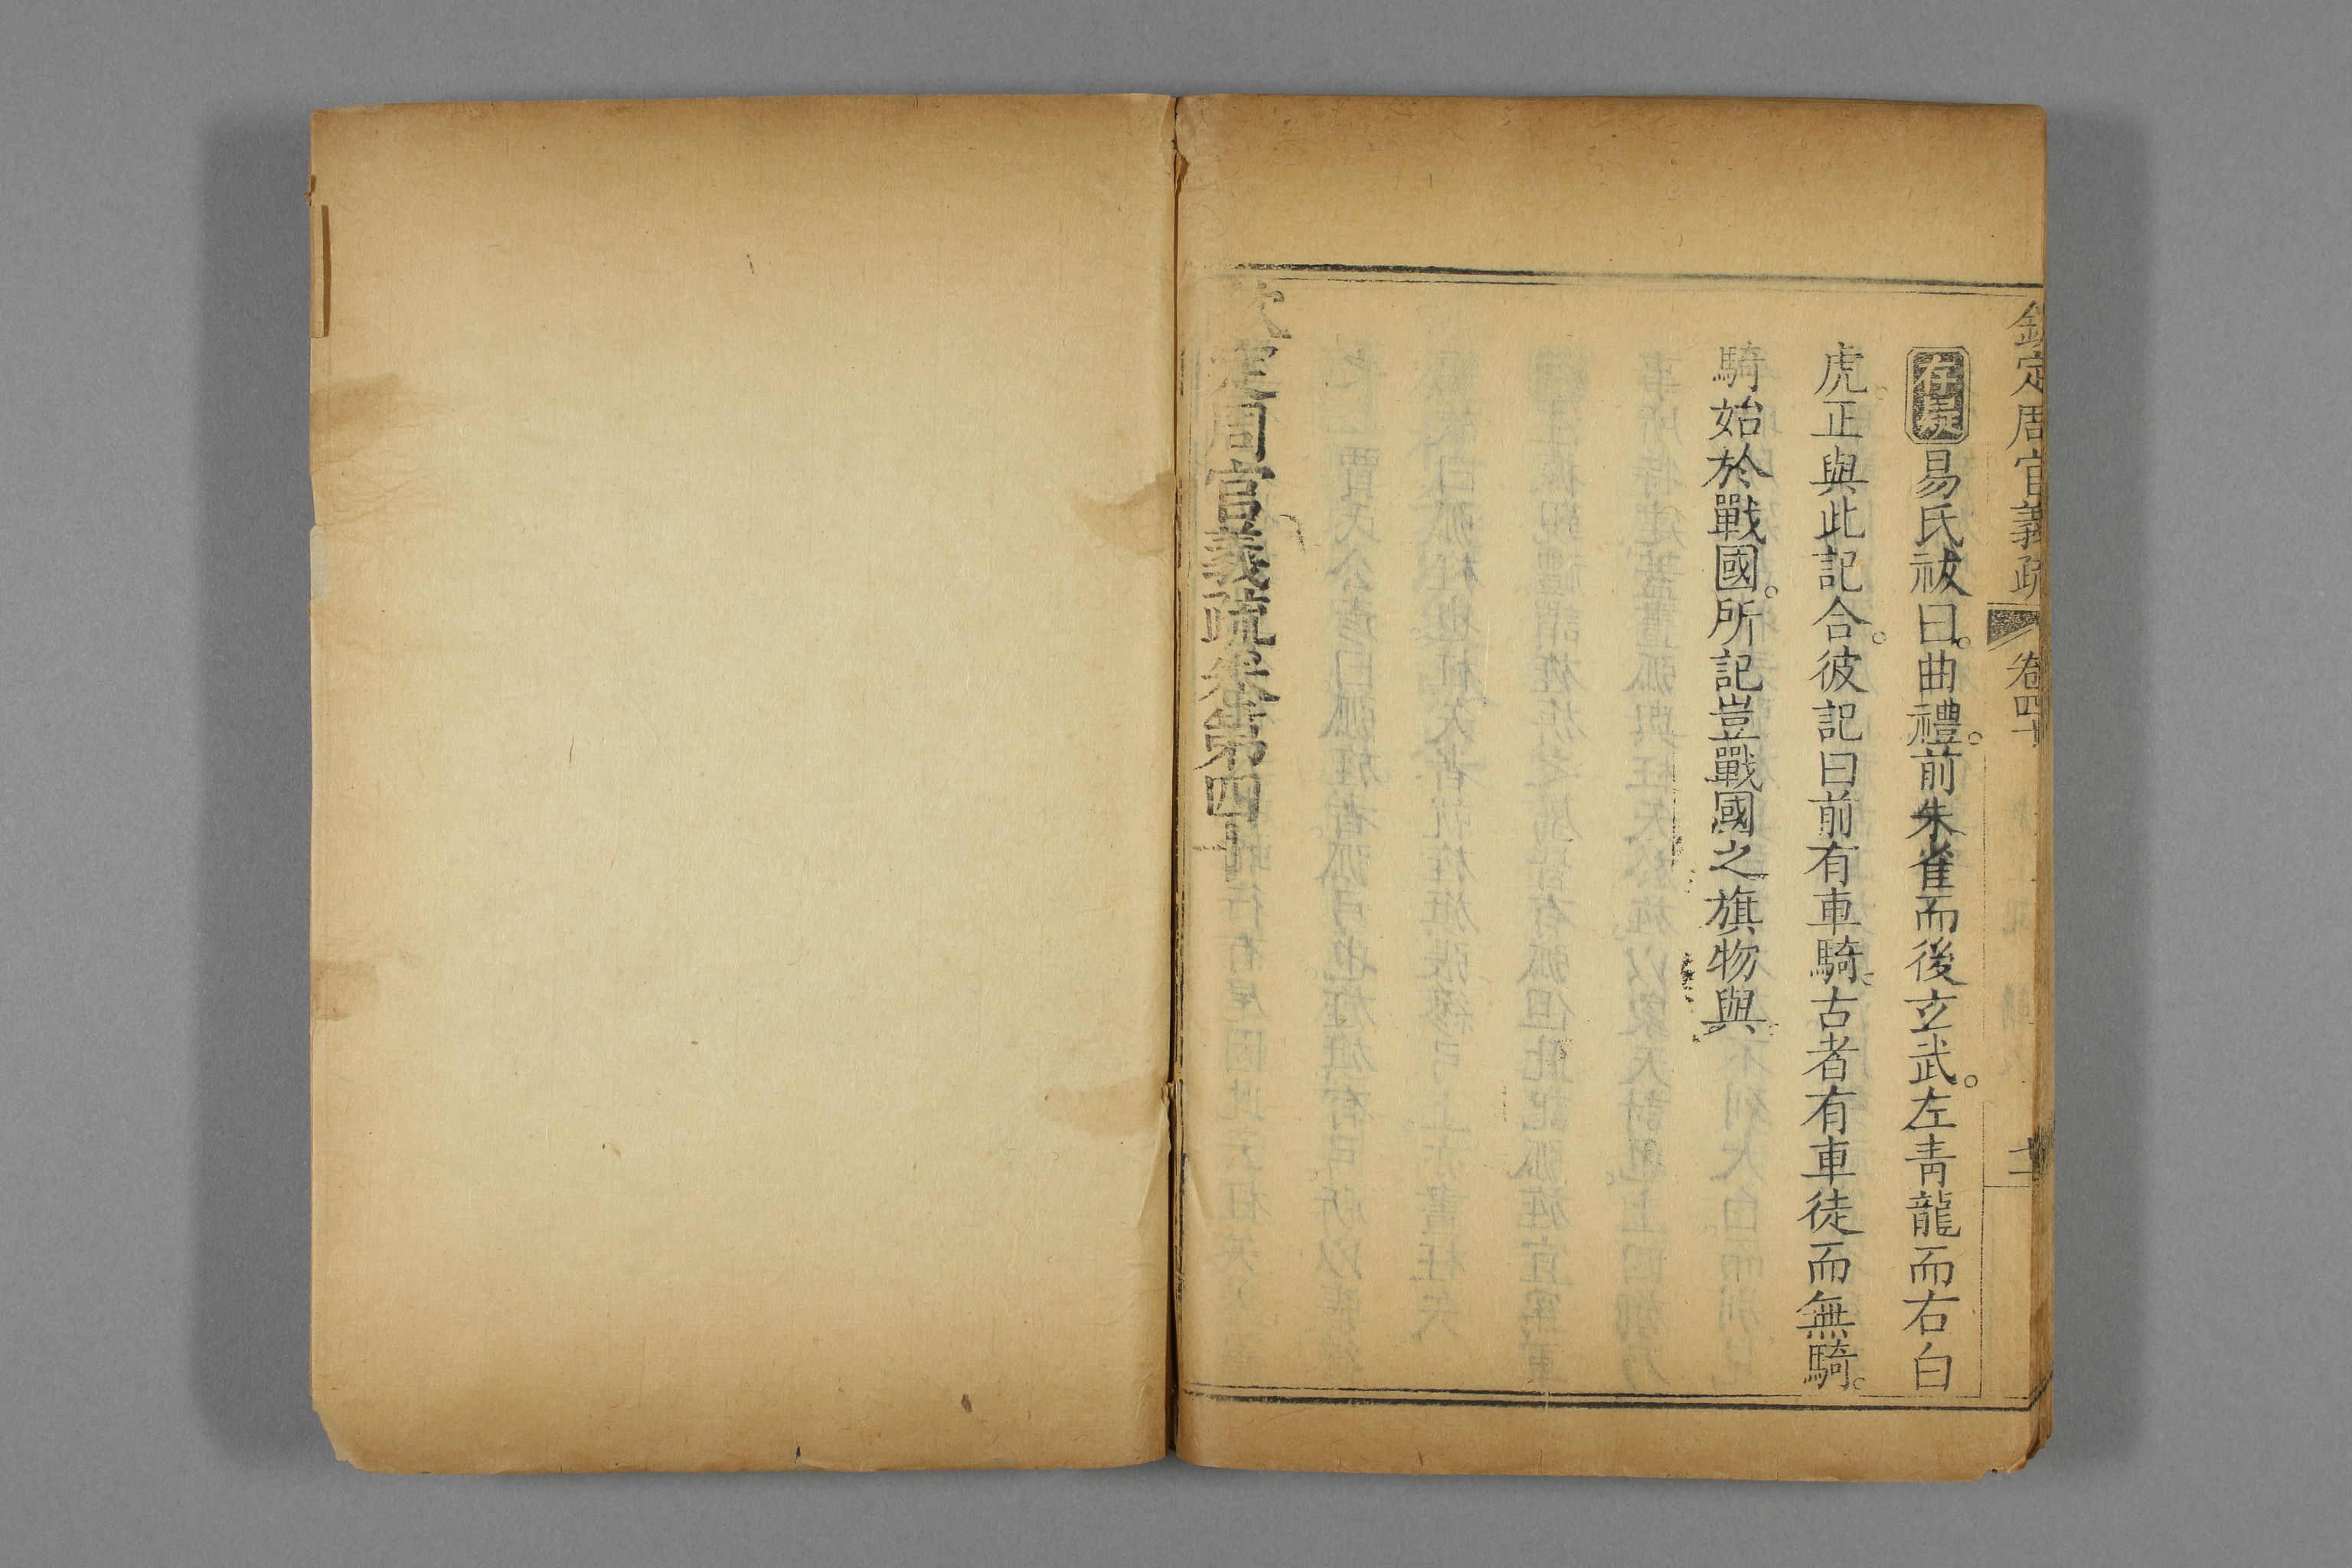 欽定周官義疏 卷四十 十二
存疑易氏祓曰。曲禮。前朱雀而後玄武。左青龍而右白
虎。正與此記合。彼記曰前有車騎。古者有車徒而無騎。
騎始於戰國。所記豈戰國之旗物與。
欽定周官義疏卷第四十